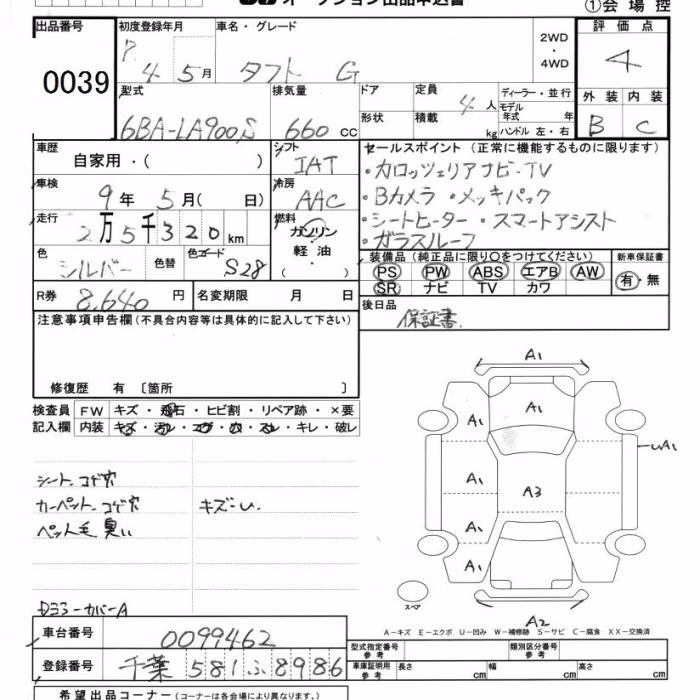 オークション出品申込書
①会場控
出品番号
0039
初度登録年月
R 4年 5月
車名・グレード
タフト G
2WD
・
4WD
評価点
4
外装 内装
B C
型式
6BA-LA900S
排気量
660 cc
ドア
形状
定員
4人
積載
kg
ディーラー・並行
モデル年式 年
ハンドル 左・右
車歴
自家用・( )
シフト
IAT
車検
9年 5月( 日)
冷房
AAC
走行
2万5千320km
燃料
ガソリン
・
軽油
色
シルバー
色替
色コード
S28
R券
8,640円
名変期限 月 日
セールスポイント(正常に機能するものに限ります)
・カロッツェリアナビ・TV
・Bカメラ ・メッキパック
・シートヒーター ・スマートアシスト
・ガラスルーフ
装備品(純正品に限り○をつけてください)
PS PW ABS エアB AW
SR ナビ TV カワ
新車保証書
有・無
後日品
保証書
注意事項申告欄(不具合内容等は具体的に記入して下さい)
修復歴 有〔箇所 〕
検査員
記入欄
FW キズ・飛石・ヒビ割・リペア跡・×要
内装 キズ・汚レ・コゲ・穴・スレ・キレ・破レ
シート、コゲ穴
カーペット、コゲ穴 キズ・い
ペット毛 臭い
ドミラーカバーA
A1
A1
A1 A1
A1 A3
A1
A1
A2
スペア
A−キズ E−エクボ U−凹み W−補修跡 S−サビ C−腐食 XX−交換済
車台番号
0099462
登録番号
千葉 581ふ8986
型式指定番号
参考
類別区分番号
参考
車庫証明用
参考
長さ cm 幅 cm 高さ cm
希望出品コーナー(コーナーは各会場により異なります。)